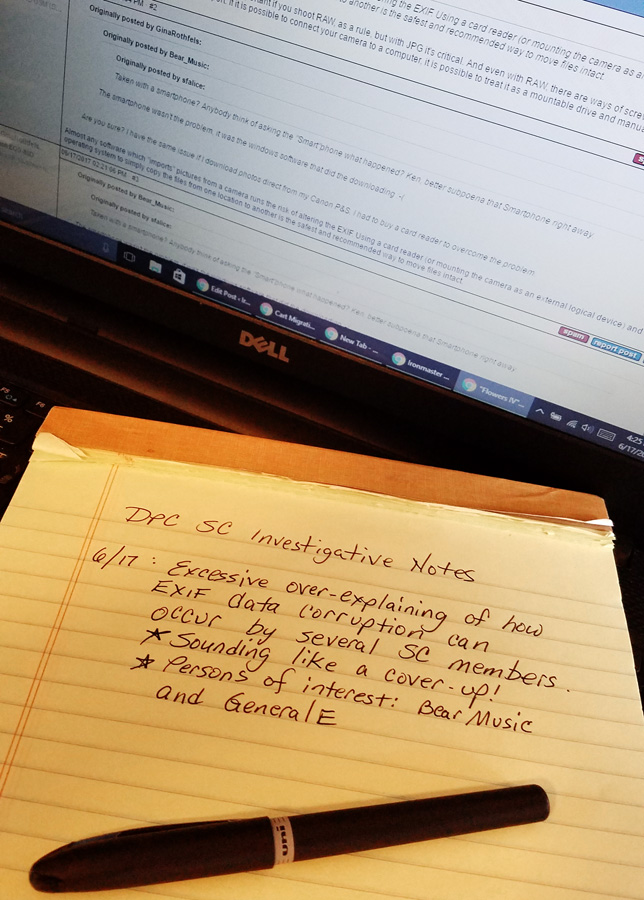 ring the EXIF Using a card reader (or mounting the camera as a
to another is the safest and recommended way to move files intact.
PM #2
Originally posted by GinaRothfels:
tant if you shoot RAW, as a rule, but with JPG it's critical. And even with RAW, there are ways of
If it is possible to connect your camera to a computer, it is possible to treat it as a mountable drive and
Originally posted by Bear_Music:
Originally posted by sfalice:
Taken with a smartphone? Anybody think of asking the "Smart"phone what happened? Ken, better subpoena that Smartphone right away.
The smartphone wasn't the problem, it was the windows software that did the downloading. :-(
Are you sure? I have the same issue if I download photos direct from my Canon P&S. I had to buy a card reader to overcome the problem.
Almost any software which "imports" pictures from a camera runs the risk of altering the EXIF Using a card reader (or mounting the camera as an external logical device) and
operating system to simply copy the files from one location to another is the safest and recommended way to move files intact.
06/17/2017 02:21:06 PM #3
Originally posted by Bear_Music:
Originally posted by sfalice:
Taken with a smartphone? Anybody think of asking the "Smart"phone what happened? Ken, better subpoena that Smartphone right away.
spam
report post
Edit Post - Ir...
Cart Migrati...
New Tab - ...
Ironmaster ...
"Flowers IV"...
4:25
6/17/20
DELL
F5
%
F6
DPC SC Investigative Notes
6/17: Excessive over-explaining of how
EXIF data corruption can
occur by several SC members.
* Sounding like a cover-up!
* Persons of interest: Bear Music
and GeneralE
uni